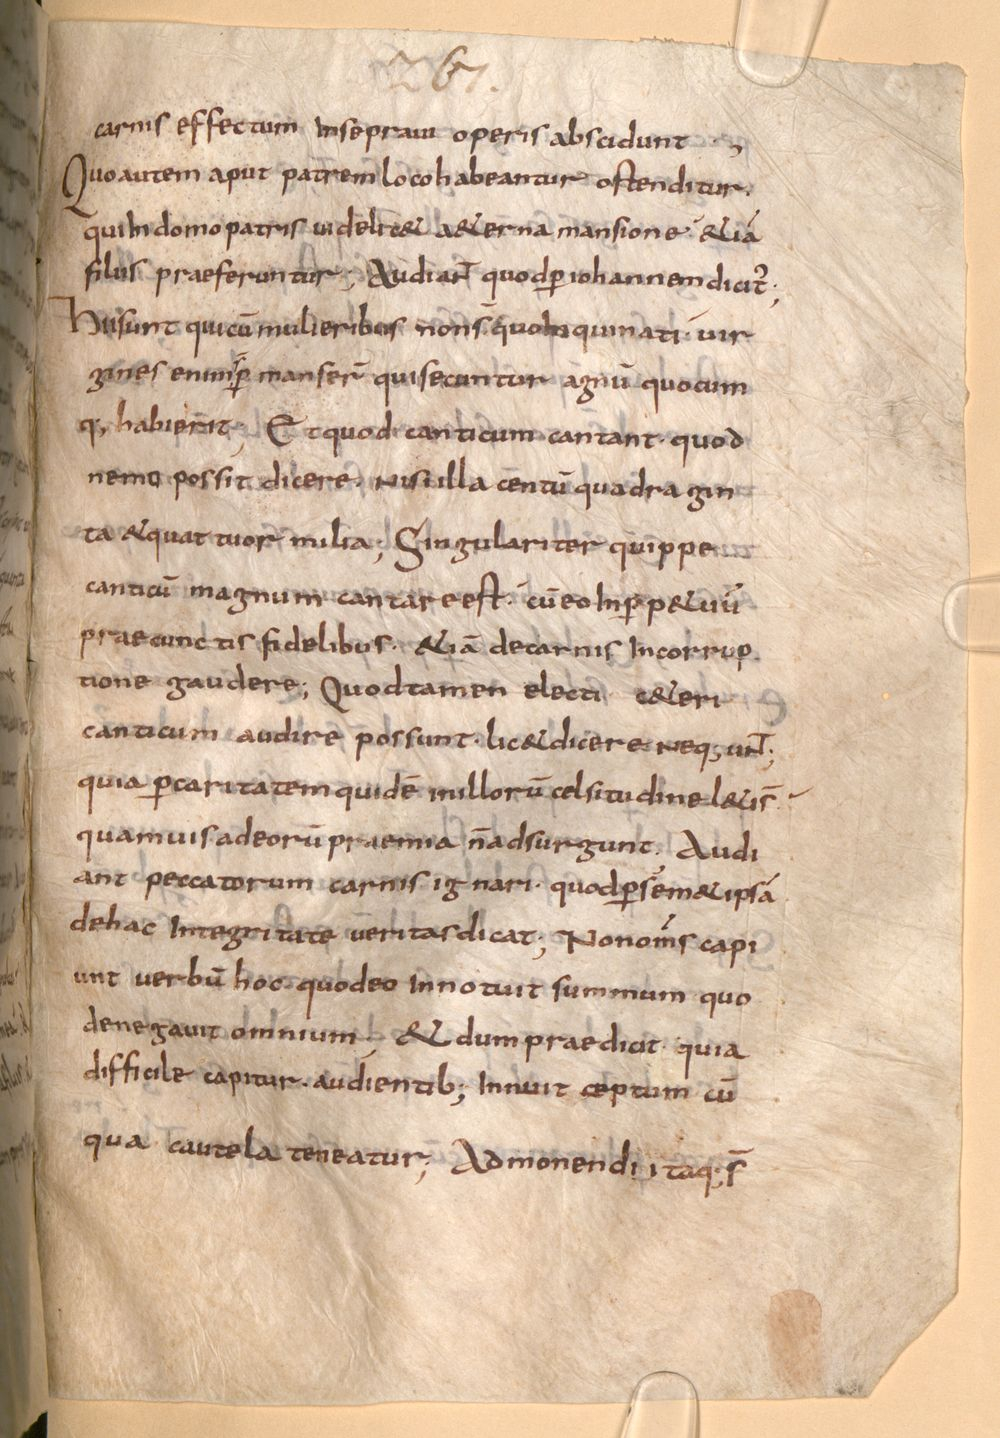 267.
carnis effectum Inse praui operis abscidunt .,
Quo autem aput patrem loco habeantur ostenditur.
qui In domo patris uidelic& a&erna mansione &iā
filiis praeferuntur; Audiant quod ꝑ iohannem dicit̄;
Hi sunt qui cū mulieribus non s̄ quoInquinati. uir
gines enim ꝑmanser̄ qui secuntur agnū quocum
q; habierit; Et quod canticum cantant. quod
nemo possit dicere. Nisi illa centū quadragin
ta &quattuor milia; Singulariter quippe
canticū magnum cantare est. cū eo In ꝑp&uū
prae cunctis fidelibus. &iā de carnis Incorrup
tione gaudere; Quod tamen electi c&eri
canticum audire possunt. lic& dicere Neq;unt;
quia ꝑ caritatem quidē in illorū celsitudine l&i s̄.
quamuis ad eorū praemia n̄ adsurgunt. Audi
ant peccatorum carnis ignari. quod ꝑ sem&ipsā
de hac Integritate ueritas dicat; Non om̄s capi
unt uerbū hoc. quod eo Innotuit summum quo
denegauit omnium; &dum praedicit quia
difficile capitur. audientib; Innuit ceptum cū
qua cautela teneatur; Admonendi itaq; s̄